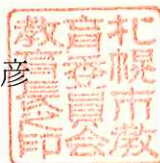 彦
札幌市教
育委員会
教育長之印